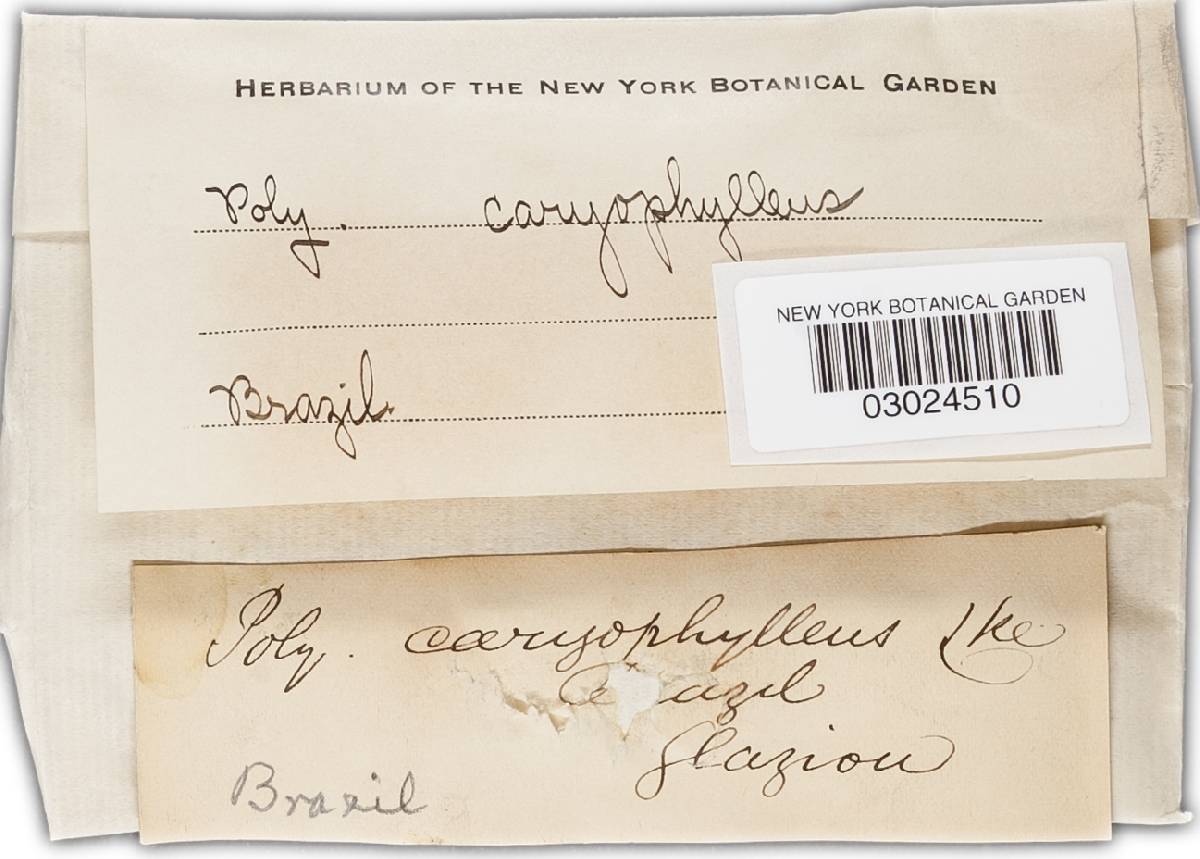 HERBARIUM OF THE NEW YORK BOTANICAL GARDEN
Poly. caryophylleus
Brazil.
NEW YORK BOTANICAL GARDEN
03024510
Poly. caryophylleus
Glaziou
Brazil